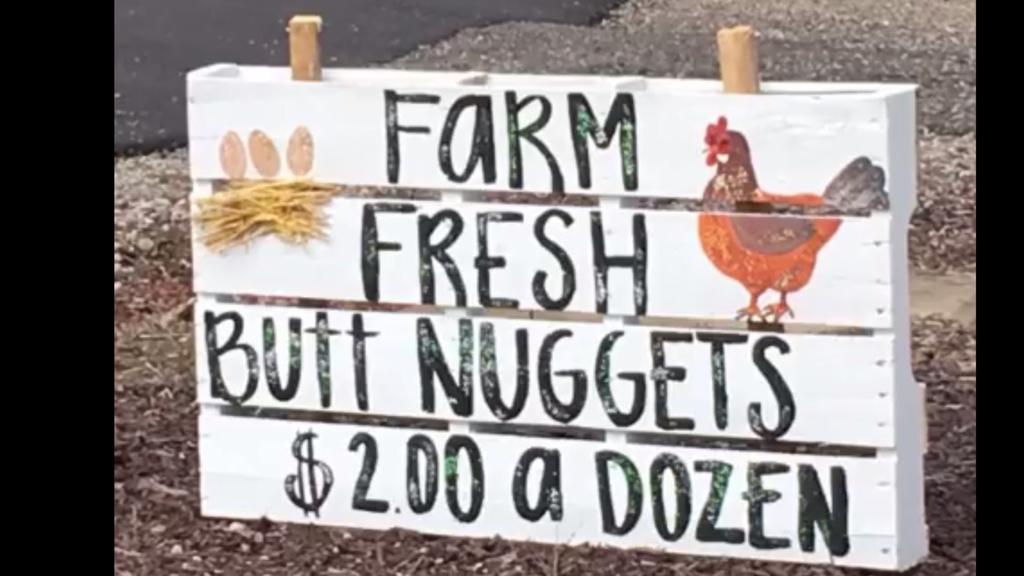 FaRM
FRESH
Butt NUGGETS
$2.00 a DOZEN